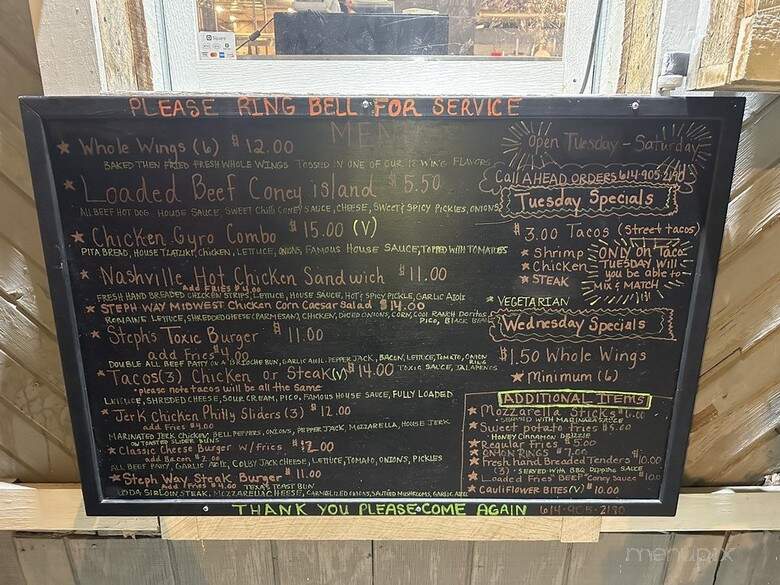 Square
PLEASE RING BELL FOR SERVICE
MENU
★ Whole Wings (6) $12.00
BAKED THEN FRIED FRESH WHOLE WINGS TOSSED IN ONE OF OUR 12 WING FLAVORS
★ Loaded Beef Coney island $5.50
ALL BEEF HOT DOG HOUSE SAUCE, SWEET Chilli CONEY SAUCE, CHEESE, SWEET & SPICY PICKLES, ONIONS
★ Chicken Gyro Combo $15.00 (V)
PITA BREAD, HOUSE TZATZIKI, CHICKEN, LETTUCE, ONIONS, FAMOUS HOUSE SAUCE, TOPPED WITH TOMATOES
★ Nashville Hot Chicken Sandwich $11.00
Add FRIES $4.00
FRESH HAND BREADED CHICKEN STRIPS, LETTUCE, HOUSE SAUCE, HOT & SPICY PICKLE, GARLIC AIOLI
★ STEPH WAY MIDWEST Chicken Corn Caesar Salad $14.00
ROMAINE LETTUCE, SHREDDED CHEESE (PARMESAN), CHICKEN, DICED ONIONS, CORN, COOL RANCH Doritos,
PICO, BLACK BEANS
★ Steph's Toxic Burger $11.00
add Fries $4.00
DOUBLE ALL BEEF PATTY ON A BRIOCHE BUN, GARLIC AIOLI, PEPPER JACK, BACON, LETTUCE, TOMATO, ONION RING
TOXIC SAUCE, JALAPENOS
★ Tacos (3) Chicken or Steak (V) $14.00
* please note tacos will be all the same
LETTUCE, SHREDDED CHEESE, SOUR CREAM, PICO, FAMOUS HOUSE SAUCE, FULLY LOADED
★ Jerk Chicken Philly Sliders (3) $12.00
add Fries $4.00
MARINATED JERK CHICKEN, BELL PEPPERS, ONIONS, PEPPER JACK, MOZZARELLA, HOUSE JERK
ON TOASTED SLIDER BUNS
★ Classic Cheese Burger w/ fries $12.00
add Bacon $2.00
ALL BEEF PATTY, GARLIC AIOLI, COLBY JACK CHEESE, LETTUCE, TOMATO, ONIONS, PICKLES
★ Steph Way Steak Burger $11.00
add Fries $4.00 TEXAS TOAST BUN
USDA SIRLOIN STEAK, MOZZARELLA CHEESE, CARMELIZED ONIONS, SAUTEED MUSHROOMS, GARLIC AIOLI
Open Tuesday - Saturday
Call AHEAD ORDERS 614-905-2190
Tuesday Specials
$3.00 Tacos (Street tacos)
★ Shrimp
★ Chicken
★ STEAK
ONLY on Taco
TUESDAY WILL
you be able to
MIX & MATCH
* VEGETARIAN
Wednesday Specials
$1.50 Whole Wings
★ Minimum (6)
ADDITIONAL ITEMS
★ Mozzarella Sticks $6.00
SERVED WITH MARINARA SAUCE
★ Sweet potato fries $5.00
HONEY CINNAMON DRIZZLE
★ Regular fries $5.00
★ ONION RINGS $7.00
★ Fresh hand Breaded Tenders $10.00
(3) - SERVED WITH BBQ Dipping SAUCE
★ Loaded Fries BEEF "Coney Sauce" $10.00
★ CauliFlower BITES (V) $10.00
THANK YOU PLEASE COME AGAIN 614-905-2190
menupix